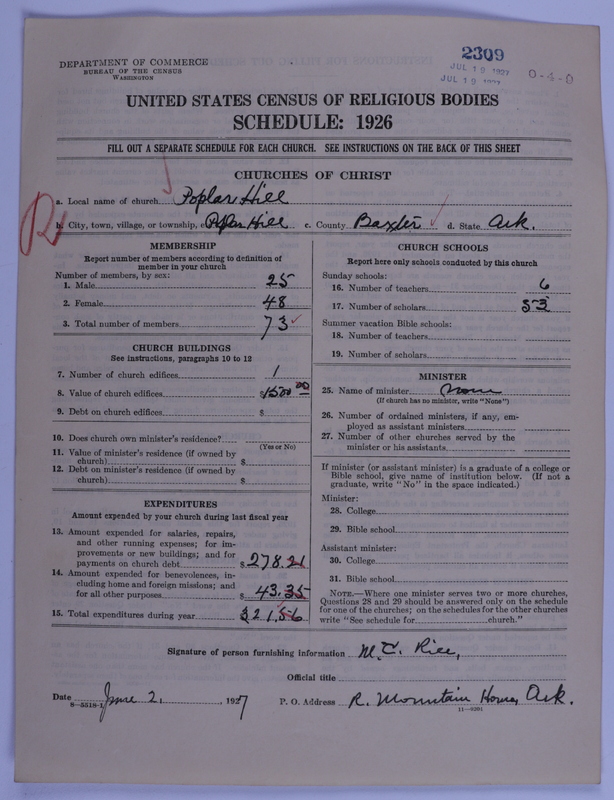 DEPARTMENT OF COMMERCE
BUREAU OF THE CENSUS
WASHINGTON
2309
JUL 19 1927
JUL 19 1927
0-4-0
UNITED STATES CENSUS OF RELIGIOUS BODIES
SCHEDULE: 1926
FILL OUT A SEPARATE SCHEDULE FOR EACH CHURCH. SEE INSTRUCTIONS ON THE BACK OF THIS SHEET
CHURCHES OF CHRIST
a. Local name of church Poplar Hill
b. City, town, village, or township, Poplar Hill c. County Baxter d. State Ark.
R
MEMBERSHIP
Report number of members according to definition of
member in your church
Number of members, by sex:
1. Male 25
2. Female 48
3. Total number of members 73
CHURCH BUILDINGS
See instructions, paragraphs 10 to 12
7. Number of church edifices 1
8. Value of church edifices $1500.00
9. Debt on church edifices $
10. Does church own minister's residence?
(Yes or No)
11. Value of minister's residence (if owned by
church) $
12. Debt on minister's residence (if owned by
church) $
EXPENDITURES
Amount expended by your church during last fiscal year
13. Amount expended for salaries, repairs,
and other running expenses; for im-
provements or new buildings; and for
payments on church debt $278.21
14. Amount expended for benevolences, in-
cluding home and foreign missions; and
for all other purposes $43.35
15. Total expenditures during year $321.56
CHURCH SCHOOLS
Report here only schools conducted by this church
Sunday schools:
16. Number of teachers 6
17. Number of scholars 53
Summer vacation Bible schools:
18. Number of teachers
19. Number of scholars
MINISTER
25. Name of minister None
(If church has no minister, write "None")
26. Number of ordained ministers, if any, em-
ployed as assistant ministers
27. Number of other churches served by the
minister or his assistants
If minister (or assistant minister) is a graduate of a college or
Bible school, give name of institution below. (If not a
graduate, write "No" in the space indicated.)
Minister:
28. College
29. Bible school
Assistant minister:
30. College
31. Bible school
NOTE.—Where one minister serves two or more churches,
Questions 28 and 29 should be answered only on the schedule
for one of the churches; on the schedules for the other churches
write "See schedule for church."
Signature of person furnishing information M. C. Rice,
Official title
Date June 2, 1927 P. O. Address R. Mountain Home, Ark.
8—5518-1 11—9391